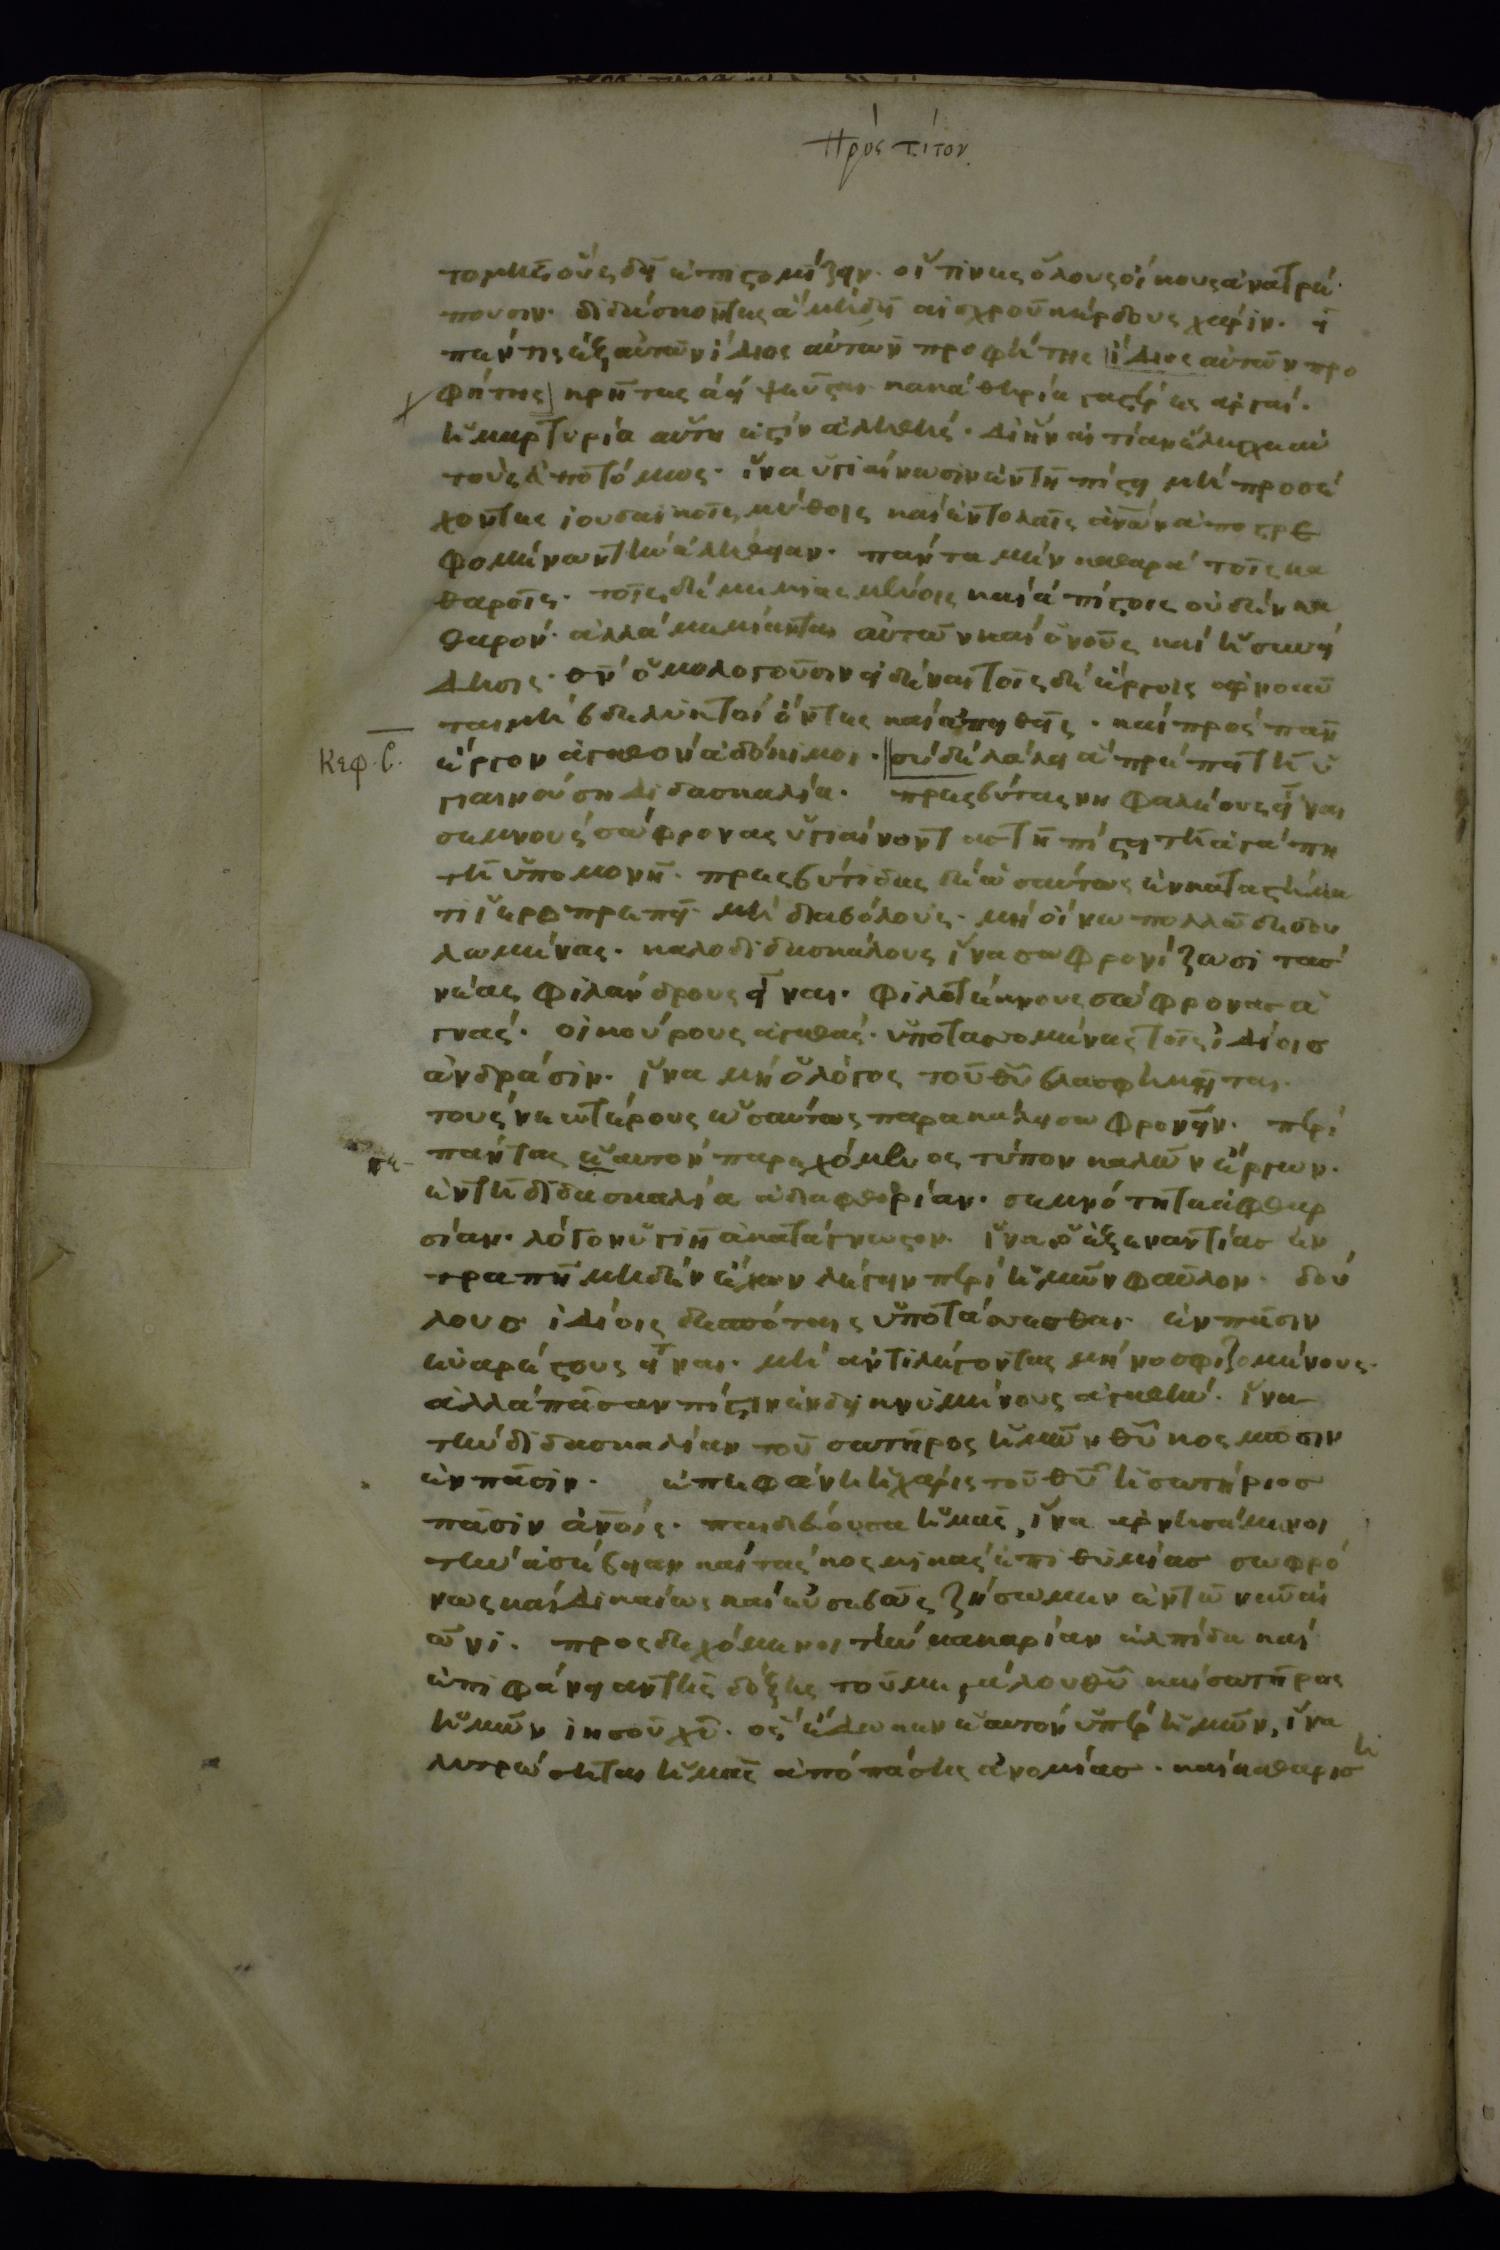 Πρὸς τίτον
τομῆς οὓς δεῖ ἐπιστομίζειν· οἵτινες ὅλους οἴκους ἀνατρέ
πουσιν· διδάσκοντες ἃ μὴ δεῖ αἰσχροῦ κέρδους χάριν· εἶ
πέν τις ἐξ αὐτῶν ἴδιος αὐτῶν προφήτης ἴδιος αὐτῶν προ
φήτης κρῆτες ἀεὶ ψεῦσται κακὰ θηρία γαστέρες ἀργαί·
ἡ μαρτυρία αὕτη ἐστὶν ἀληθής· δι ἣν αἰτίαν ἔλεγχε αὐ
τοὺς ἀποτόμως· ἵνα ὑγιαίνωσιν ἐν τῇ πίστει μὴ προσέ
χοντες ἰουδαικοῖς μύθοις καὶ ἐντολαῖς ἀνων ἀποστρε
φομένων τὴν ἀλήθειαν· πάντα μὲν καθαρὰ τοῖς κα
θαροῖς· τοῖς δὲ μεμιασμένοις καὶ ἀπίστοις οὐδὲν κα
θαρόν· ἀλλὰ μεμίανται αὐτῶν καὶ ὁ νοῦς καὶ ἡ συνεί
δησις· θν ὁμολογοῦσιν εἰδέναι τοῖς δὲ ἔργοις ἀρνοῦν
ται μὴ βδελυκτοὶ ὄντες καὶ ἀπειθεῖς· καὶ πρὸς πᾶν
Κεφ. β.
ἔργον ἀγαθὸν ἀδόκιμοι· σὺ δὲ λάλει ἃ πρέπει τῇ ὑ
γιαινούσῃ διδασκαλία· πρεσβύτας νηφαλέους εἶναι
σεμνοὺς σώφρονας ὑγιαίνοντας τῇ πίστει τῇ ἀγάπῃ
τῇ ὑπομονῇ· πρεσβύτιδας δὲ ὡσαύτως ἐν καταστήμα
τι ἱεροπρεπεῖ μὴ διαβόλους· μὴ οἴνω πολλῶ δεδου
λωμένας· καλοδιδασκάλους ἵνα σωφρονίζωσι τὰς
νέας φιλάνδρους εἶναι· φιλοτέκνους σώφρονας ἁ
γνάς· οἰκουροὺς ἀγαθάς· ὑποτασσομένας τοῖς ἰδίοις
ἀνδράσιν· ἵνα μὴ ὁ λόγος τοῦ θυ βλασφημῆται·
τοὺς νεωτέρους ὡσαύτως παρακάλει σωφρονεῖν· περὶ
πε
πάντας ἑαυτὸν παρεχόμενος τύπον καλῶν ἔργων·
ἐν τῇ διδασκαλία ἀδιαφθορίαν· σεμνότητα ἀφθαρ
σίαν· λόγον ὑγιῆ ἀκατάγνωστον· ἵνα ὁ ἐξ ἐναντίας ἐν
τραπῇ μηδὲν ἔχων λέγειν περὶ ἡμῶν φαῦλον· δού
λους ἰδίοις δεσπόταις ὑποτάσσεσθαι ἐν πᾶσιν
εὐαρέστους εἶναι· μὴ ἀντιλέγοντας μὴ νοσφιζομένους·
ἀλλὰ πᾶσαν πίστιν ἐνδεικνυμένους ἀγαθήν· ἵνα
τὴν διδασκαλίαν τοῦ σωτῆρος ἡμῶν θυ κοσμῶσιν
ἐν πᾶσιν· ἐπεφάνη ἡ χάρις τοῦ θυ ἡ σωτήριος
πᾶσιν ἀνοις· παιδεύουσα ἡμᾶς, ἵνα ἀρνησάμενοι
τὴν ἀσέβειαν καὶ τὰς κοσμικὰς ἐπιθυμίας σωφρό
νως καὶ δικαίως καὶ εὐσεβῶς ζήσωμεν ἐν τῶ νῦν αἰ
ῶνι· προσδεχόμενοι τὴν μακαρίαν ἐλπίδα καὶ
ἐπιφάνειαν τῆς δόξης τοῦ μεγάλου θυ καὶ σωτῆρος
ἡμῶν ἰησοῦ χυ· ὃς ἔδωκεν ἑαυτὸν ὑπὲρ ἡμῶν, ἵνα
λυτρώσηται ἡμᾶς ἀπὸ πάσης ἀνομίας· καὶ καθαρίσῃ